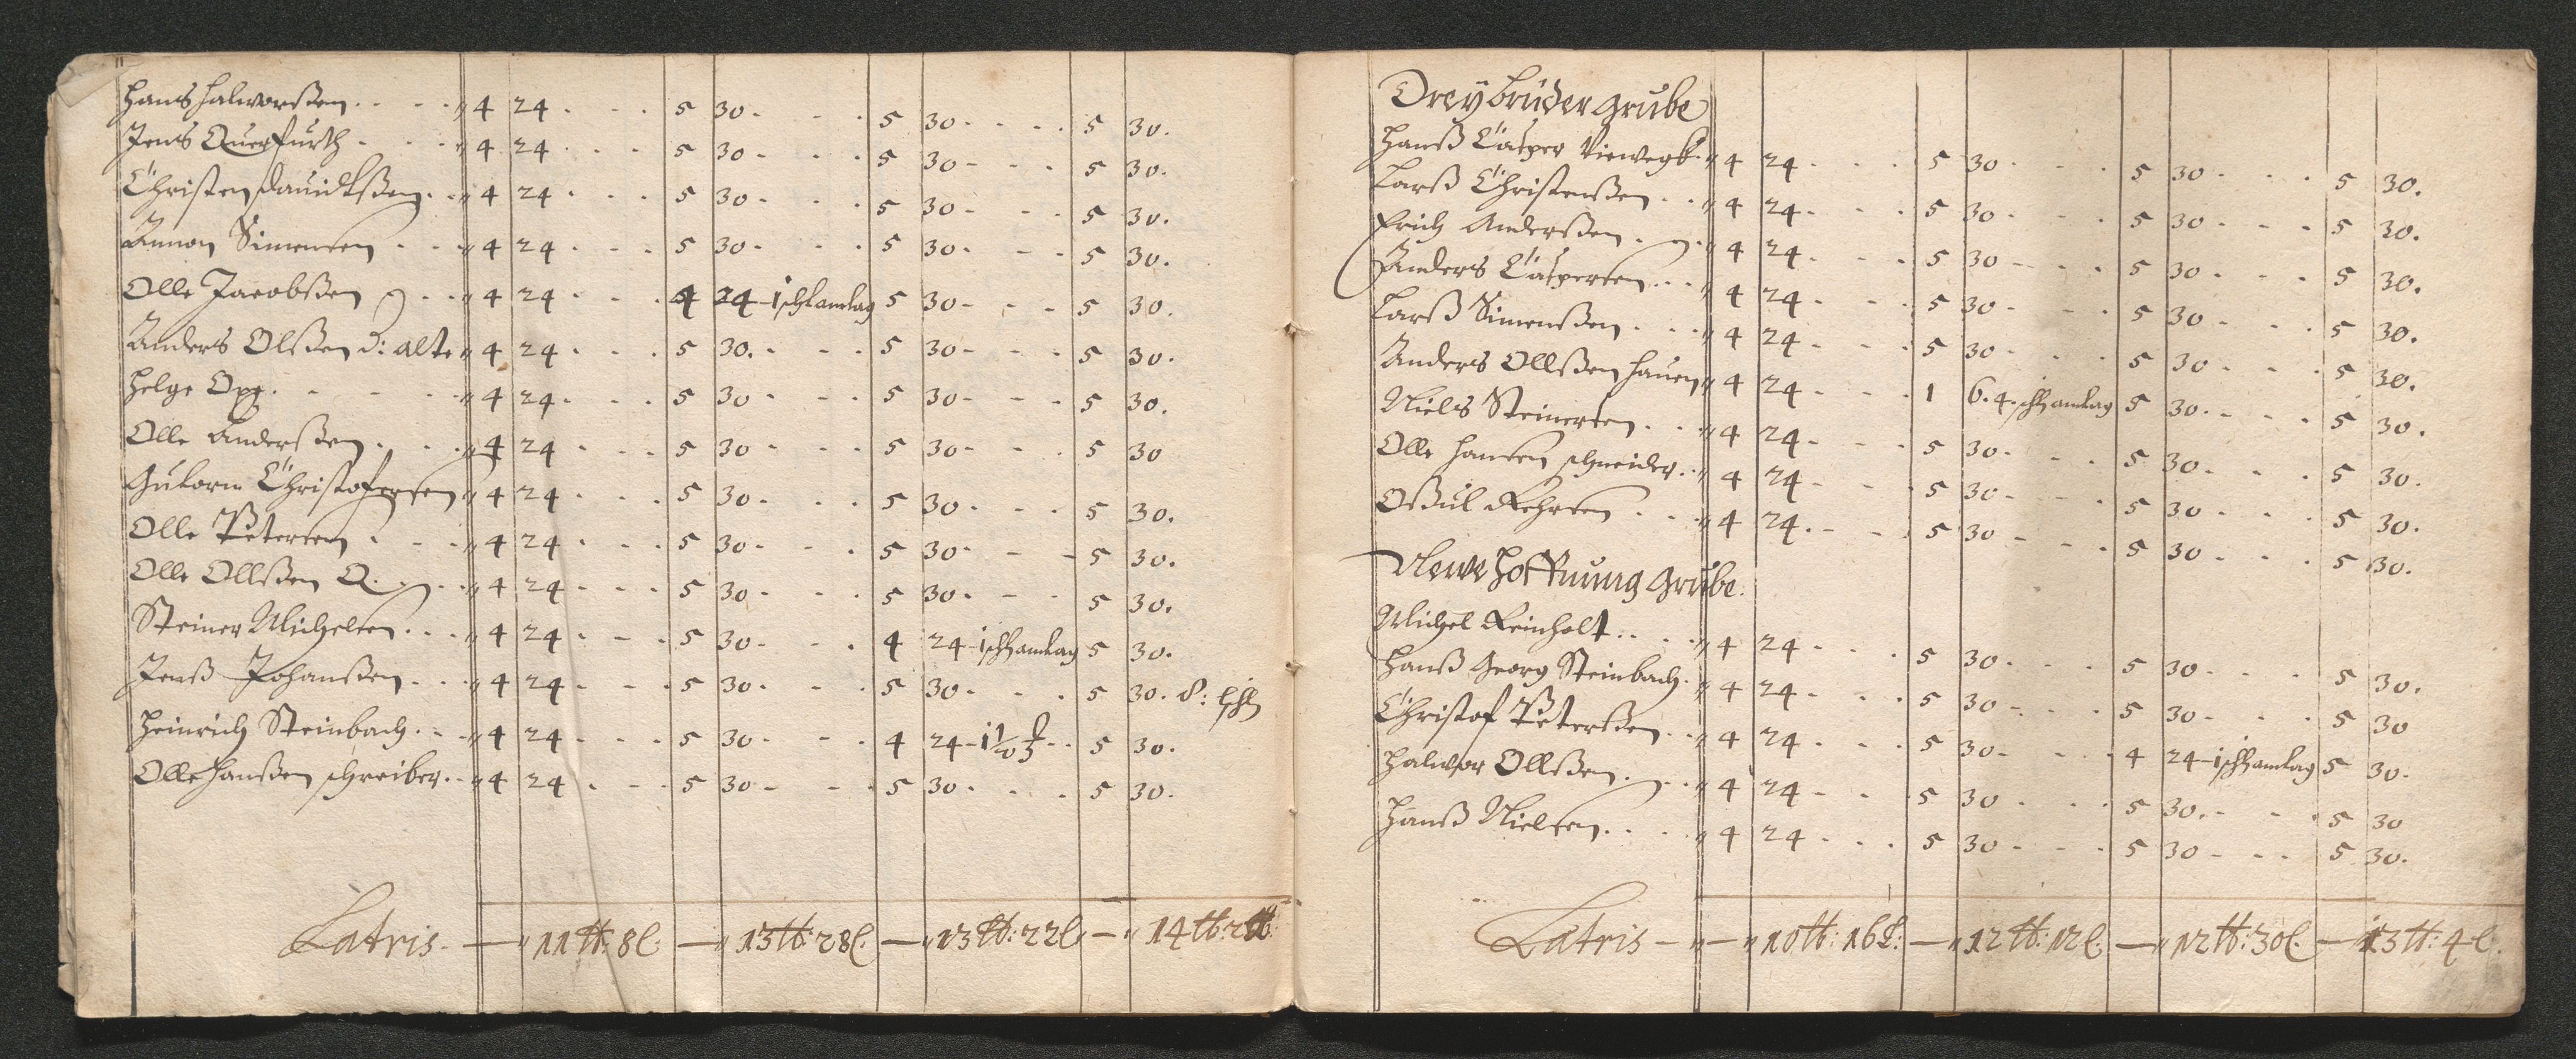 Hans Halworßen. . . . „ 4 24 . . . 5 30 . . . 5 30 . . . 5 30.
Jens Querfurth . . . „ 4 24 . . . 5 30 . . . 5 30 . . . 5 30.
Christen Dauidtßen . . „ 4 24 . . . 5 30 . . . 5 30 . . . 5 30.
Simensen . . „ 4 24 . . . 5 30 . . . 5 30 . . . 5 30.
Olle Jacobßen . . „ 4 24 . . . 4 24 - 1 5 30 . . . 5 30.
Anders Olßen d: alte „ 4 24 . . . 5 30. . . . 5 30 . . . 5 30.
Helge . . . . „ 4 24 . . . 5 30 . . . 5 30 . . . 5 30.
Olle Anderßen . . . „ 4 24 . . . 5 30 . . . 5 30 . . . 5 30
Gulorm Christofersen „ 4 24 . . . 5 30 . . . 5 30 . . . 5 30.
Olle Petersen . . . „ 4 24 . . . 5 30 . . . 5 30 . . . 5 30.
Olle Ollßen Q. . . „ 4 24 . . . 5 30 . . . 5 30 . . . 5 30.
Steiner Michelsen . . . „ 4 24 . . . 5 30 . . . 4 24 - 1 5 30.
Jenß Johanßen . . . „ 4 24 . . . 5 30 . . . 5 30 . . . 5 30.
Heinrich Steinbach . . „ 4 24 . . . 5 30 . . . 4 24 - 5 30.
Olle Hanßen schreiber . . „ 4 24 . . . 5 30 . . . 5 30 . . . 5 30.
Latris. — „ 11 tt: 8 l. — „ 13 tt: 28 l. — „ 13 tt: 22 l. — „ 14 tt:
Dreybrüder grube
Hanß Casper Viewegk „ 4 24 . . . 5 30 . . . 5 30 . . . 5 30.
Larß Christenßen . . „ 4 24 . . . 5 30 . . . 5 30 . . . 5 30.
Erich Anderßen . . „ 4 24 . . . 5 30 . . . 5 30 . . . 5 30.
Anders Caspersen . . „ 4 24 . . . 5 30 . . . 5 30 . . . 5 30.
Larß Simenßen . . . „ 4 24 . . . 5 30 . . . 5 30 . . . 5 30.
Anders Ollßen Hauen „ 4 24 . . . 1 6. 4. 5 30 . . . 5 30.
Niels Steinersen . . „ 4 24 . . . 5 30 . . . 5 30 . . . 5 30.
Olle Hansen schneider . . „ 4 24 . . . 5 30 . . . 5 30 . . . 5 30.
Oßul . . . „ 4 24 . . . 5 30 . . . 5 30 . . . 5 30.
Newe Hoffnung Grube.
Michel Reinholt . . . „ 4 24 . . . 5 30 . . . 5 30 . . . 5 30.
Hanß Georg Steinbach . „ 4 24 . . . 5 30 . . . 5 30 . . . 5 30
Christof Peterßen . . „ 4 24 . . . 5 30 . . . 4 24 - 1 5 30.
Halwor Ollßen . . „ 4 24 . . . 5 30 . . . 5 30 . . . 5 30
Hanß Nielsen . . . „ 4 24 . . . 5 30 . . . 5 30 . . . 5 30.
Latris - „ — „ 10 tt: 16 l: — „ 12 tt: 12 l. — „ 12 tt: 30 l. — 13 tt: 4 l.